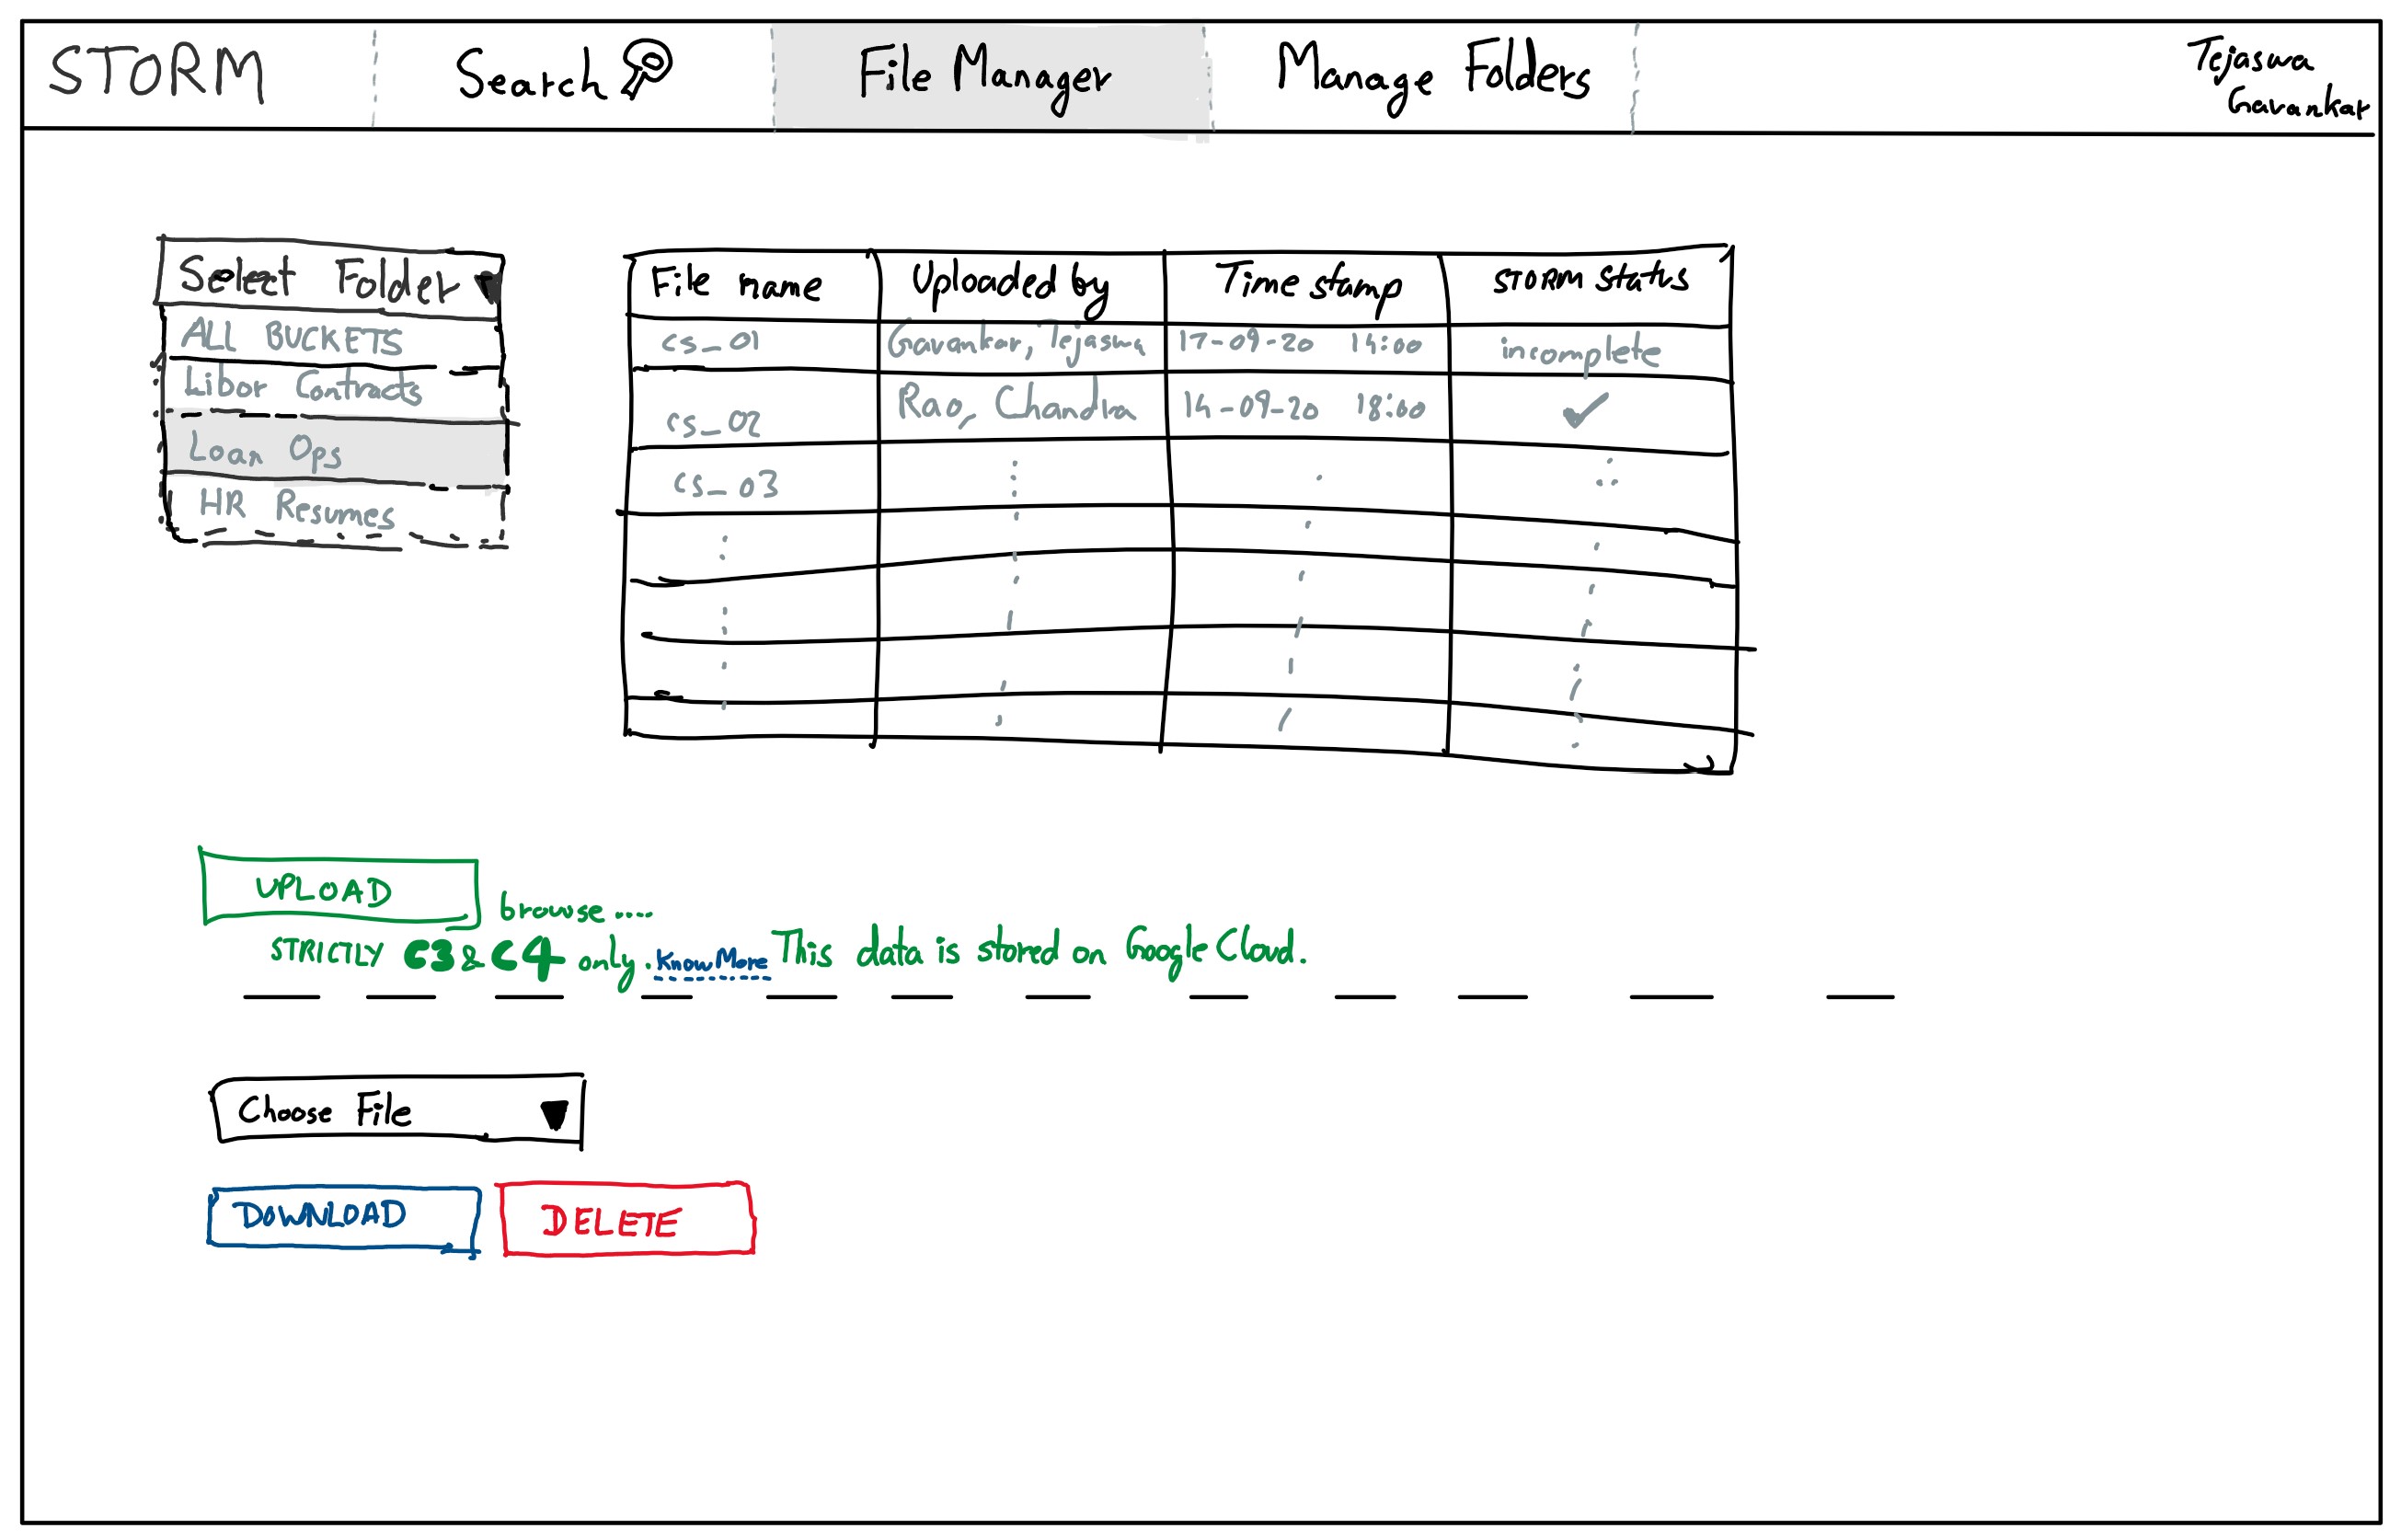 STORM
Search
File Manager
Manage Folders
Tejaswa
Gavankar
Select Folder
ALL BUCKETS
Libor Contracts
Loan Ops
HR Resumes
File name Uploaded by Time stamp STORM status
cs_01 Gavankar, Tejaswa 17-09-20 14:00 incomplete
cs_02 Rao, Chandra 14-09-20 18:00 ✓
cs_03
UPLOAD
browse....
STRICTLY C3 & C4 only. Know More This data is stored on Google Cloud.
Choose File
DOWNLOAD
DELETE